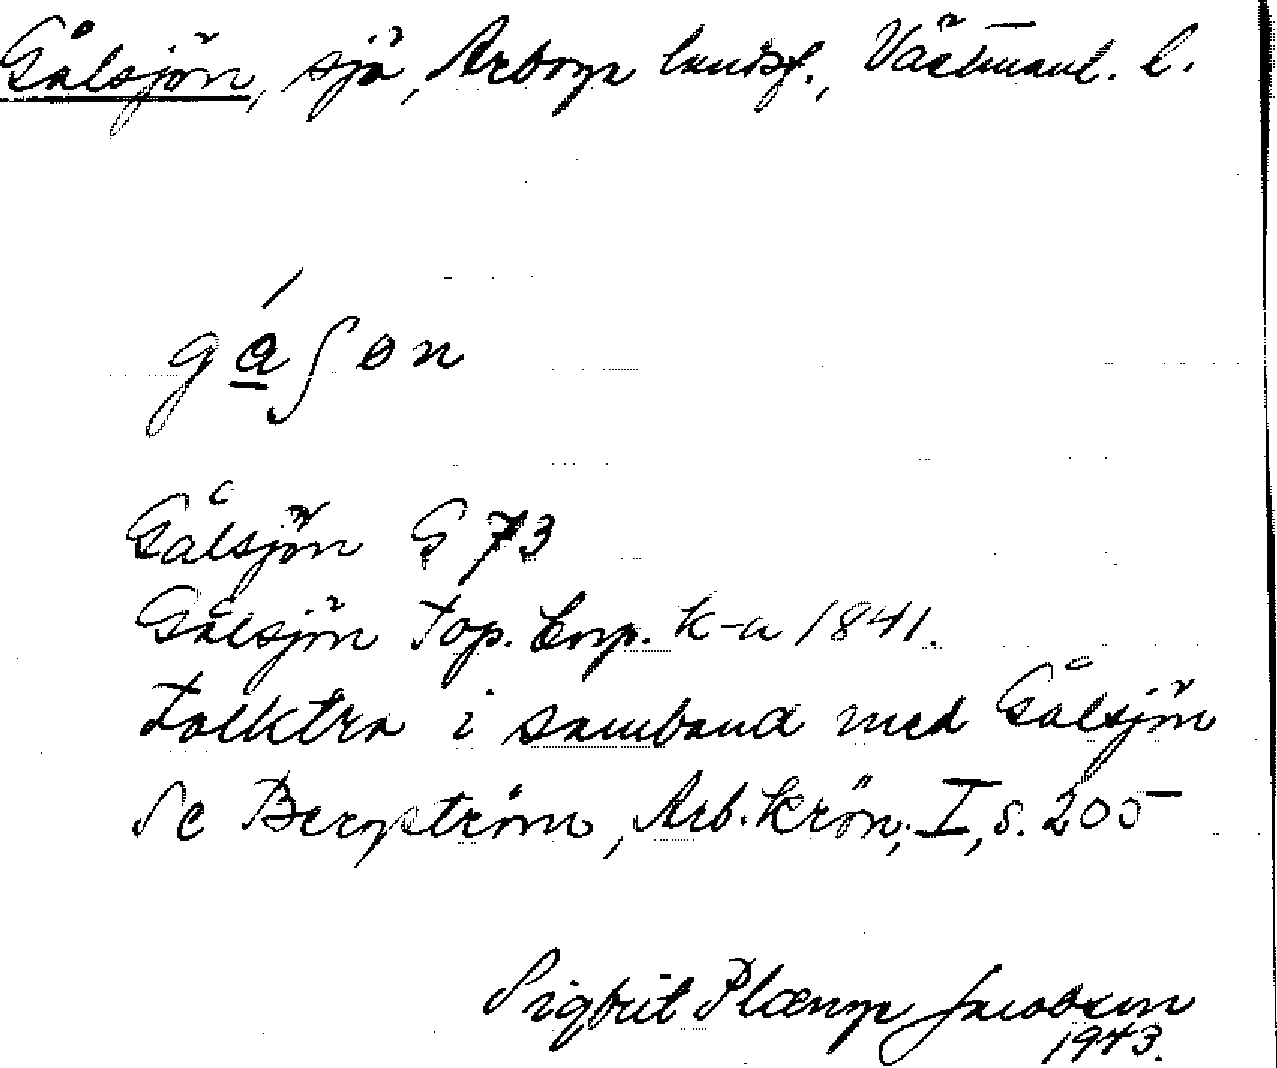 Gålsjön, sjö, Arboga landsf., Västmanl. l.
gåʃøn
Gålsjön G 73
Gålsjön Top. Corp. k-a 1841.
Folktro i samband med Gålsjön
se Bergström, Arb. krön., I, s. 205
Sigbrit Plænge Jacobson
1943.